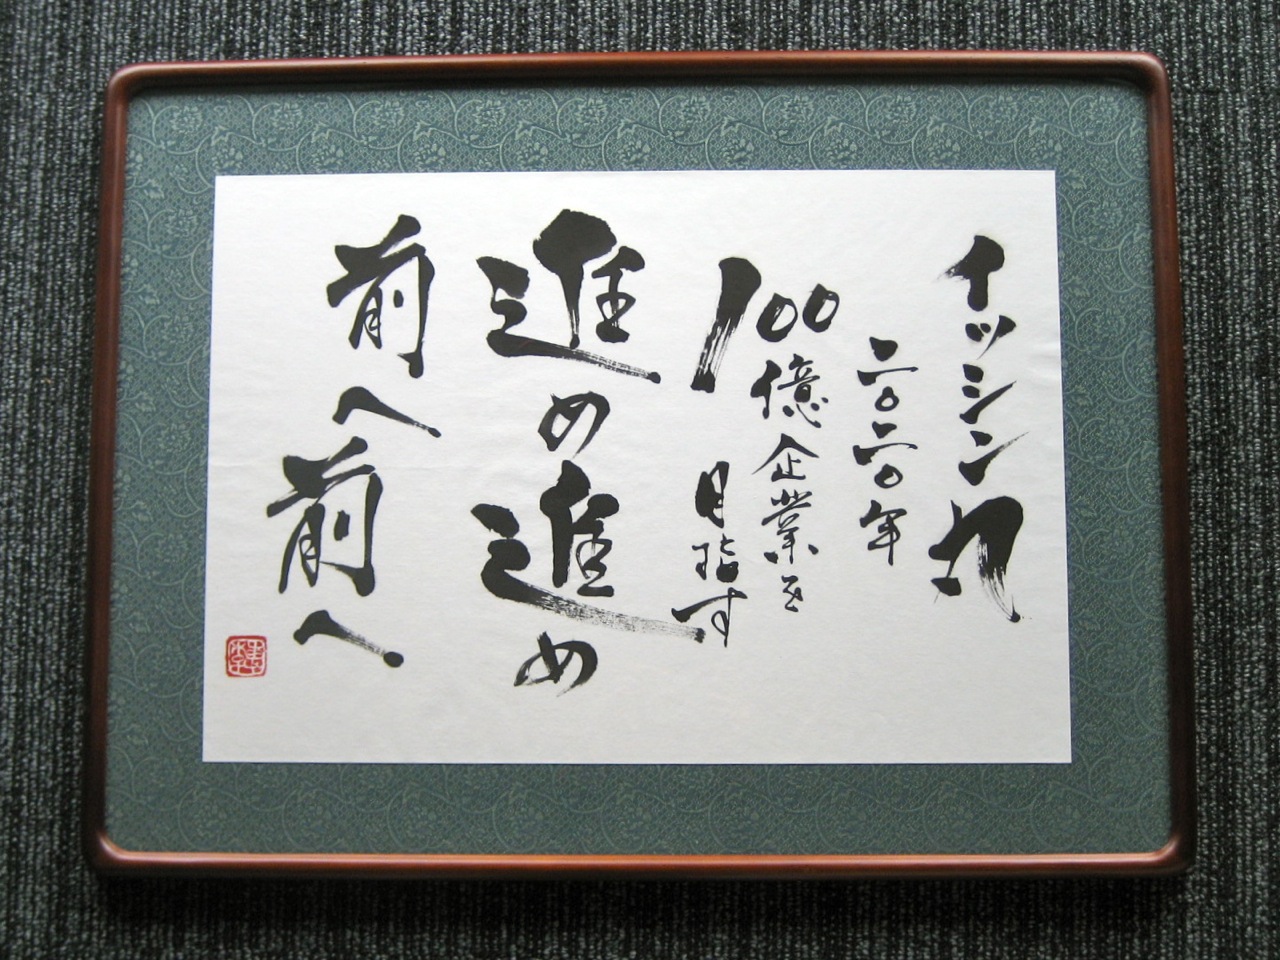 イッシン丸
二〇二〇年
100億企業を
目指す
進め進め
前へ前へ